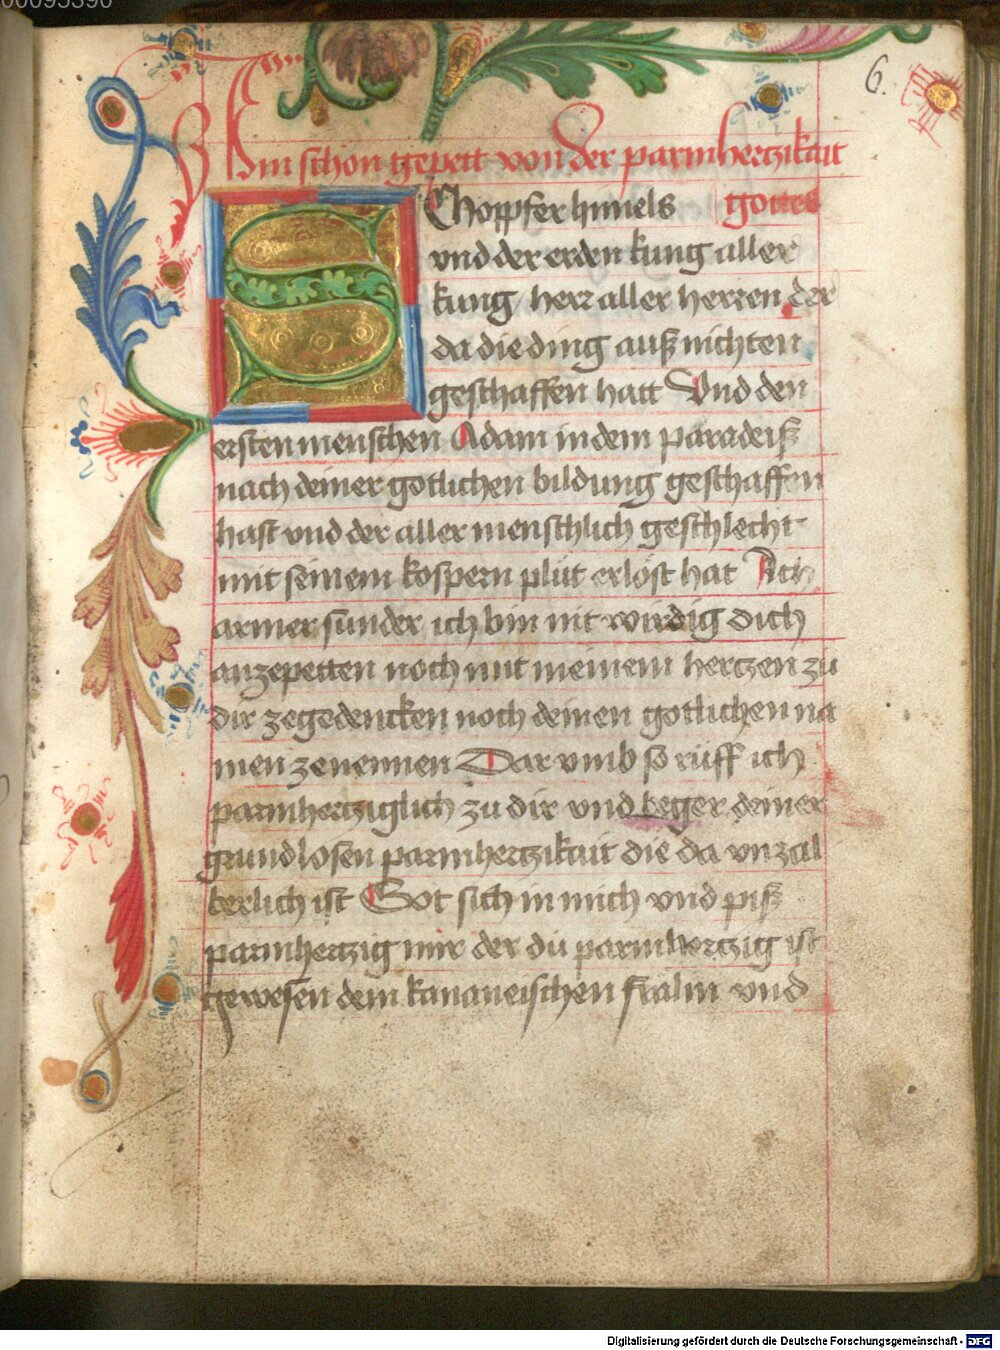 00095390
6.
Ain schon gepett von der parmhertzikait
gottes
SChopffer himels
vnd der erden kung aller
kung herr aller herren der
da die ding auß nichten
geschaffen hatt Vnd den
ersten menschen Adam in dem paradeiß
nach deiner gotlichen bildung geschaffen
hast vnd der aller menschlich geschlecht
mit seinem kospern plut erlost hat Ach
armer sunder ich bin nit wirdig dich
anzepetten noch mit meinem hertzen zu
dir zegedencken noch deinen gotlichen na
men zenennen Dar vmb so rüff ich
parmhertziglich zu dir vnd beger deiner
grundlosen parmhertzikait die da vnzal
berlich ist Got sich in mich vnd piß
parmhertzig mir der du parmhertzig ist
gewesen dem kananeischen fralin vnd
Digitalisierung gefördert durch die Deutsche Forschungsgemeinschaft - DFG